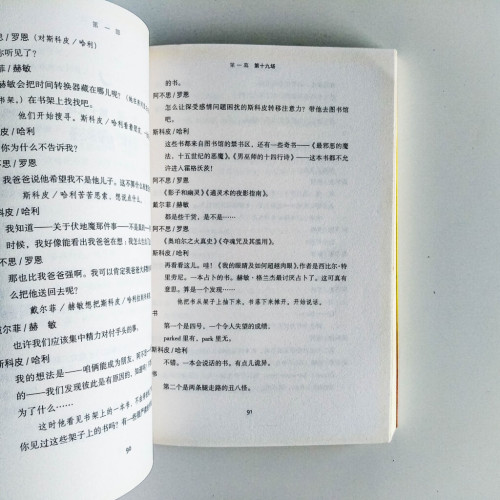 第一幕
斯科皮/罗恩（对斯科皮/哈利）
你听见了？
戴尔菲/赫敏
赫敏会把时间转换器藏在哪儿呢？
书架。）在书架上找找吧。
他们开始搜寻。斯科皮/哈利
阿不思/罗恩
你为什么不告诉我？
斯科皮/哈利
我爸爸说他希望我不是他儿子。这不算什么
斯科皮/哈利苦苦思索，想说点
我知道——关于伏地魔那件事——不是真的
时候，我好像能看出我爸爸在想：我怎么
阿不思/罗恩
那也比我爸爸强啊。我可以肯定我爸爸大
么把他送回去呢？
戴尔菲/赫敏想把斯科皮/哈利
戴尔菲/赫敏
也许我们应该集中精力对付手头的事。
斯科皮/哈利
我的想法是——咱俩能成为朋友，
的——我们发现彼此是有原因的，
为了什么……
这时他看见书架上的一本书，
你见过这些架子上的书吗？有一些
90
第一幕 第十九场
的书。
阿不思/罗恩
怎么让深受感情问题困扰的斯科皮转移注意力？带他去图书馆
吧。
斯科皮/哈利
这些书都来自图书馆的禁书区，还有一些奇书——《最邪恶的魔
法，十五世纪的恶魔》。《男巫师的十四行诗》——这本书都不允
许进入霍格沃茨！
阿不思/罗恩
《影子和幽灵》《通灵术的夜影指南》。
戴尔菲/赫敏
都是些干货，是不是……
阿不思/罗恩
《奥珀尔之火真史》《夺魂咒及其滥用》。
斯科皮/哈利
再看看这儿。哇！《我的眼睛及如何超越肉眼》，作者是西比尔·特
里劳尼。一本占卜的书。赫敏·格兰杰最讨厌占卜了。这可真有意
思。算是一个发现……
他把书从架子上抽下来，书落下来摊开，开始说话。
书
第一个是四号，一个令人失望的成绩，
parked 里有，park 里无。
斯科皮/哈利
不错。一本会说话的书。有点儿诡异。
书
第二个是两条腿走路的丑八怪。
91